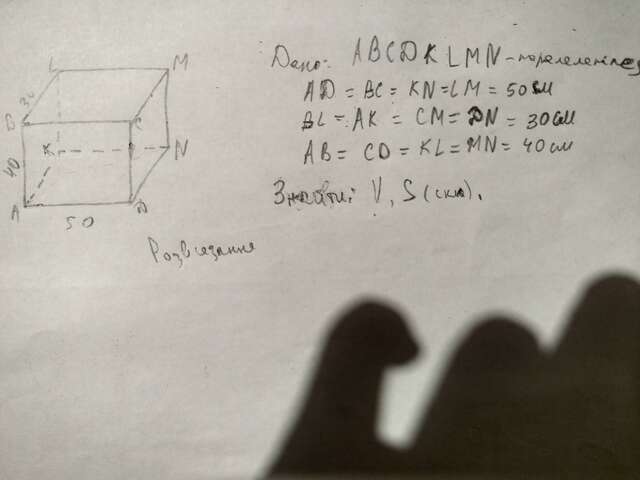 L M
30
B C
K N
40
A D
50
Дано: ABCDKLMN - паралелепіпед
AD = BC = KN = LM = 50 см
BL = AK = CM = DN = 30 см
AB = CD = KL = MN = 40 см
Знайти: V, S (скла).
Розв'язання